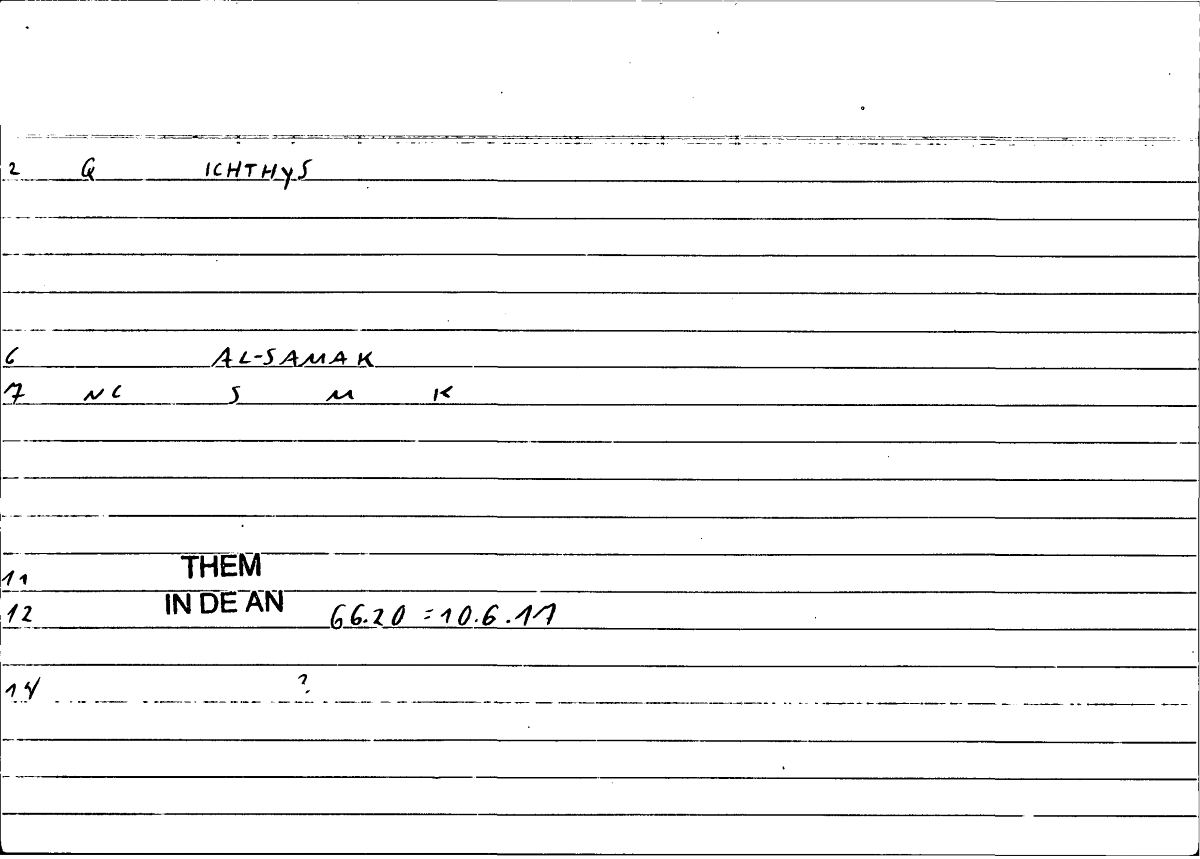 2 G ICHTHYS
6 AL-SAMAK
7 NC S M K
11 THEM
12 IN DE AN 66.20 = 10.6.17
14 ?